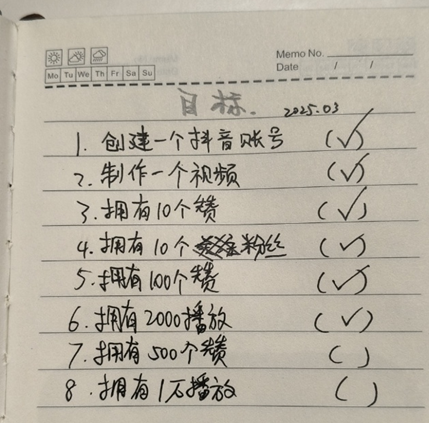 Memo No.
Mo Tu We Th Fr Sa Su
Date / /
目标. 2025.03
1. 创建一个抖音账号 (✓)
2. 制作一个视频 (✓)
3. 拥有10个赞 (✓)
4. 拥有10个粉丝 (✓)
5. 拥有100个赞 (✓)
6. 拥有2000播放 (✓)
7. 拥有500个赞 ( )
8. 拥有1万播放 ( )